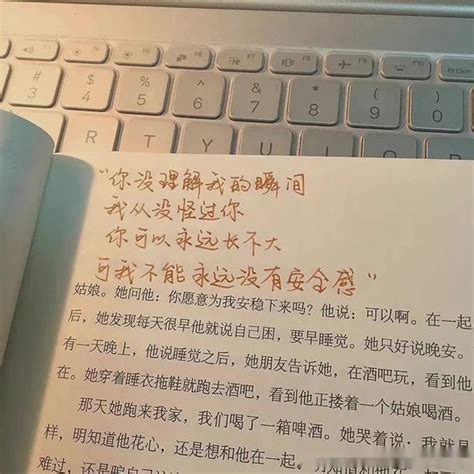 F1 F2 F3 F4 F5 F6 F7 F8 F9 F10 PrtScn
# $ % ^ & * ( )
3 4 5 6 7 8 9 0
R T Y U I O P
“你没理解我的瞬间
我从没怪过你
你可以永远长不大
可我不能永远没有安全感”
姑娘。她问他：你愿意为我安稳下来吗？他说：可以啊。在一起
后，她发现每天很早他就说自己困，要早睡觉。她只好说晚安。
有一天晚上，他说睡觉之后，她朋友告诉她，在酒吧玩，看到他
在。她穿着睡衣拖鞋就跑去酒吧，看到他正搂着一个姑娘喝酒。
那天她跑来我家，我们喝了一箱啤酒。她哭着说：我就是
样，明知道他花心，还是想和他在一起。
难过，还是